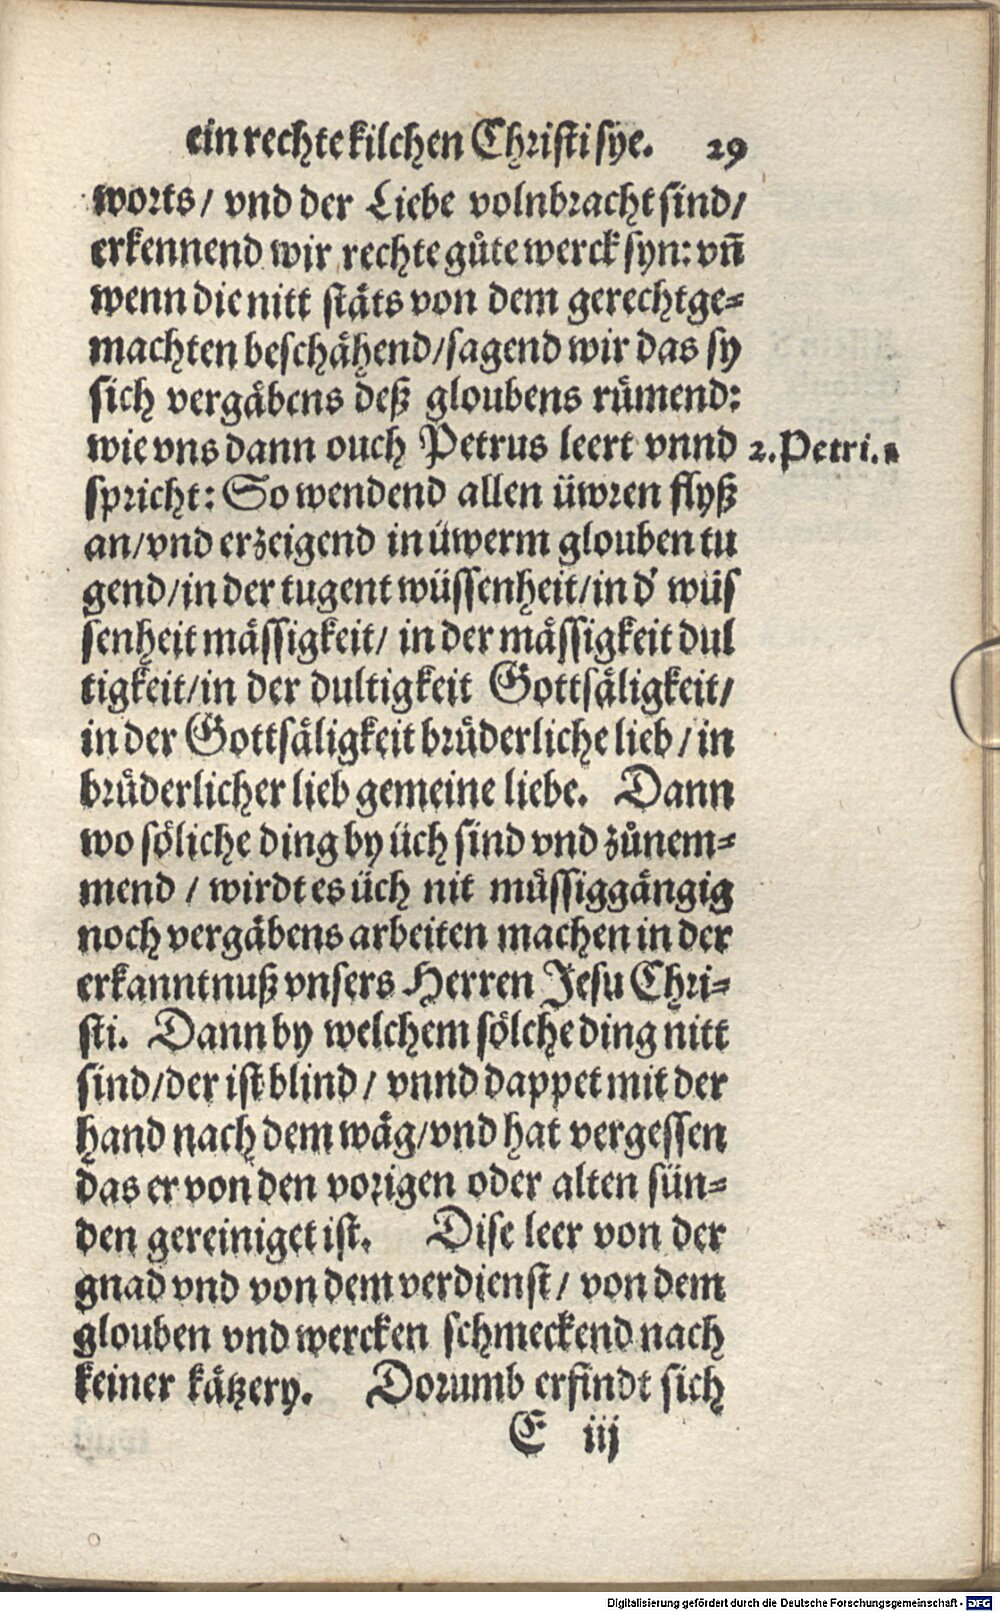 ein rechte kilchen Christi sye. 29
worts / vnd der Liebe volnbracht sind /
erkennend wir rechte gůte werck syn: vñ
wenn die nitt stäts von dem gerechtge⸗
machten beschähend / sagend wir das sy
sich vergäbens deß gloubens růmend:
wie vns dann ouch Petrus leert vnnd 2. Petri.
spricht: So wendend allen üwren flyß
an / vnd erzeigend in üwerm glouben tu
gend / in der tugent wüssenheit / in d' wüs
senheit mässigkeit / in der mässigkeit dul
tigkeit / in der dultigkeit Gottsäligkeit /
in der Gottsäligkeit brůderliche lieb / in
brůderlicher lieb gemeine liebe. Dann
wo söliche ding by üch sind vnd zůnem⸗
mend / wirdt es üch nit müssiggängig
noch vergäbens arbeiten machen in der
erkanntnuß vnsers Herren Jesu Chri⸗
sti. Dann by welchem sölche ding nitt
sind / der ist blind / vnnd dappet mit der
hand nach dem wäg / vnd hat vergessen
das er von den vorigen oder alten sün⸗
den gereiniget ist. Dise leer von der
gnad vnd von dem verdienst / von dem
glouben vnd wercken schmeckend nach
keiner kätzery. Dorumb erfindt sich
E iij
Digitalisierung gefördert durch die Deutsche Forschungsgemeinschaft - DFG